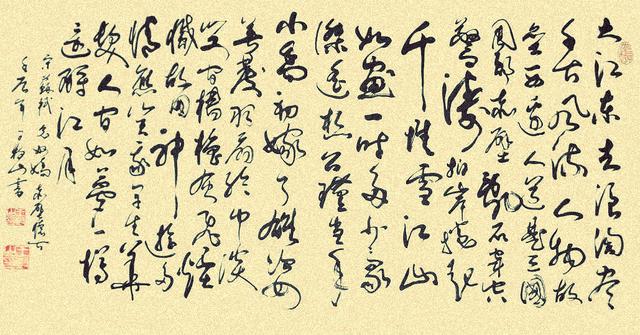 大江东去浪淘尽
千古风流人物故
垒西边人道是三國
周郎赤壁乱石穿空
驚涛拍岸捲起
千堆雪江山
如画一时多少豪
傑遥想公瑾当年
小乔初嫁了雄姿
英发羽扇纶巾谈
笑间樯橹灰飞煙
灭故国神游多
情应笑我早生华
发人间如梦一樽
还酹江月
宋苏轼念奴娇赤壁怀古
壬辰年山书